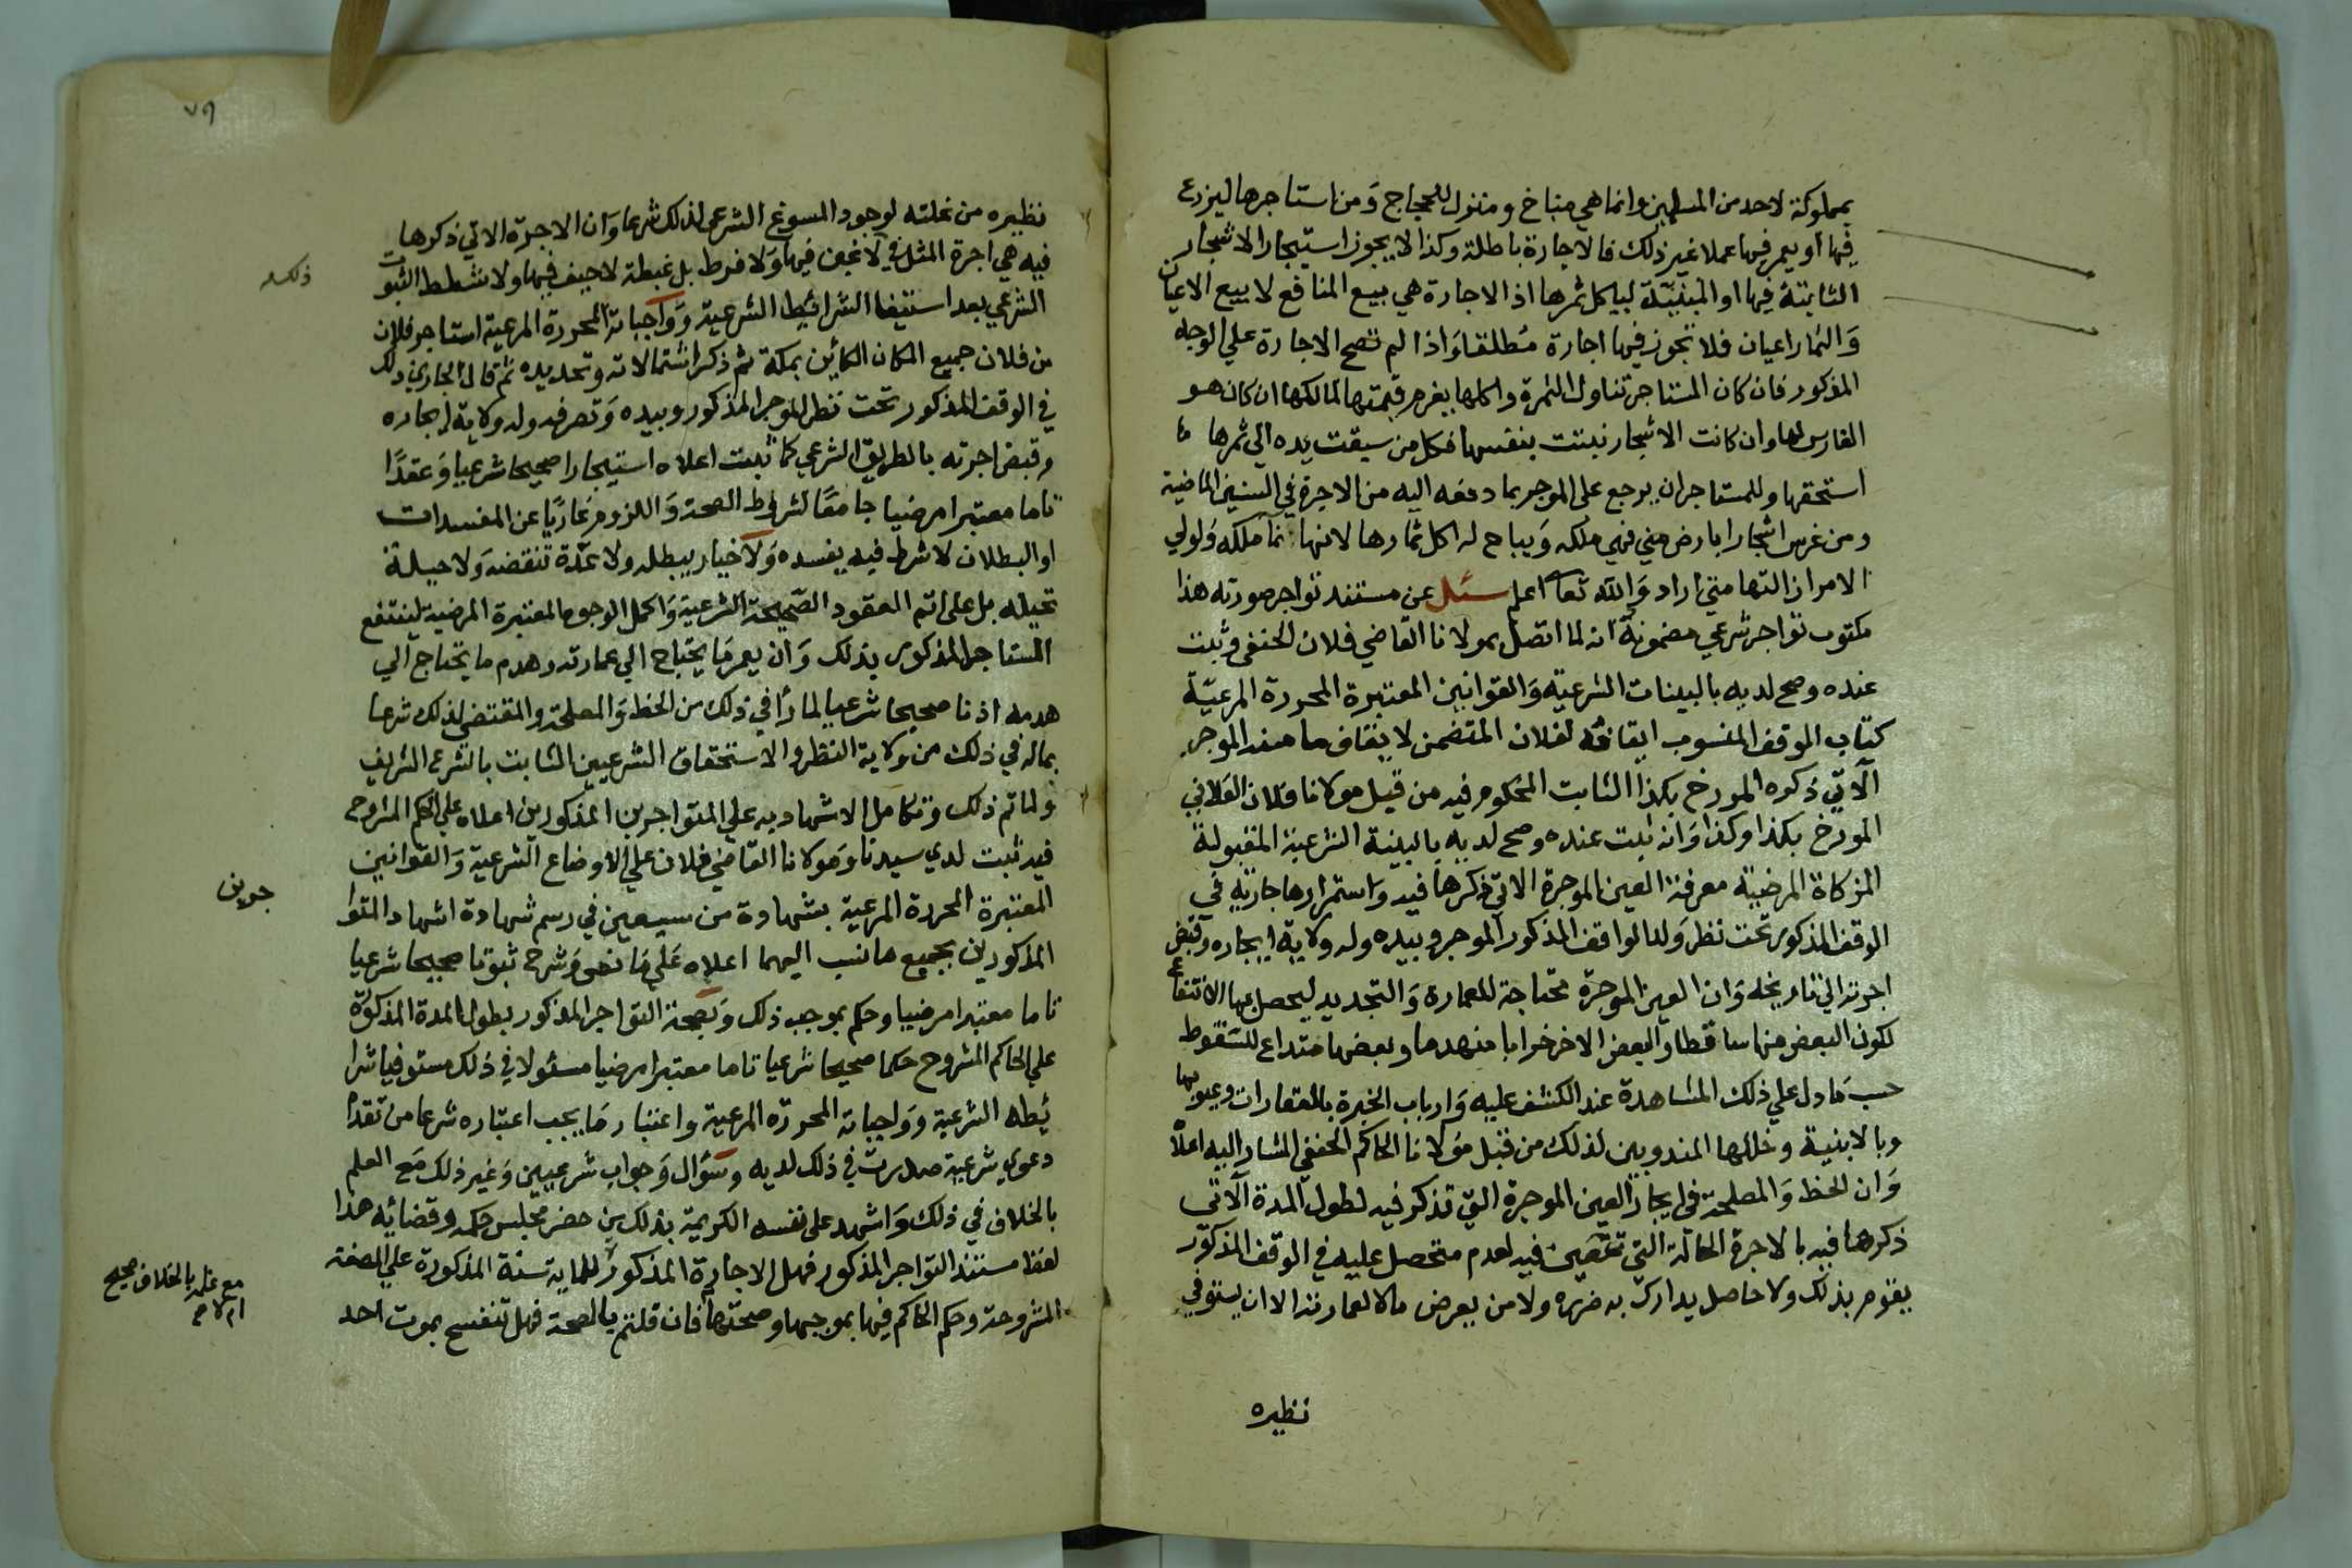 بمملوكة لاحد من المسلمين وانما هي مناخ ومنزل للحجاج وَمن استاجرها ليزرع
فيها او يعمر فيها عملا غير ذلك فالاجارة باطلة وكذا لا يجوز استيجار الاشجار
الثابتة فيها او المبنيّة لياكل ثمرها اذ الاجارة هي بيع المنافع لا بيع الاعيان
وَالثمار اعيان فلا تجوز فيها اجارة مُطلقا وَاذا لم تصح الاجارة علي الوجه
المذكور فان كان المستاجر تناول الثمرة واكلها يغرم قيمتها لمالكها ان كان هو
الغارس لها وان كانت الاشجار نبتت بنفسها فكل من سبقت يده الي ثمرها
استحقها وللمستاجر ان يرجع على الموجر بما دفعه اليه من الاجرة في السنين الماضية
ومن غرس اشجارا بارض مني فهي ملكه وَيباح له اكل ثمارها لانها نما ملكه وَلولي
الامر ازالتها متي اراد وَالله تعا اعلم سئل عن مستند تواجر صورته هذا
مكتوب تواجر شرعي مضمونه انه لما اتصل بمولانا القاضي فلان الحنفي وثبت
عنده وصح لديه بالبينات الشرعيّه وَالقوانين المعتبرة المحررة المرعيّة
كتاب الوقف المنسوب ايقافه لفلان المتضمن لايقاف ما منه الموجر
الآتي ذكره المورخ بكذا الثابت المحكوم فيه من قبل مولانا فلان الفلاني
المورخ بكذا وكذا وَانه ثبت عنده وصح لديه بالبينة الشرعية المقبولة
المزكاة المرضية معرفة العين الموجرة الاتي ذكرها فيه واستمرارها جارية في
الوقف المذكور تحت نظر وَلد الواقف المذكور الموجر وبيده وله ولاية ايجاره وقبض
اجرته الي تاريخه وَان العين الموجرة محتاجة للعمارة وَالتجديد ليحصل بها الانتفاع
لكون البعض منها ساقطا والبعض الاخر خرابا منهدما وبعضها متداع للسقوط
حسب مَا دل علي ذلك المشاهدة عند الكشف عليه وَارباب الخبرة بالعقارات وعيوبها
وبالابنية وخللها المندوبين لذلك من قبل مَولانا الحاكم الحنفي المشار اليه اعلا
وَان الحظ وَالمصلحة في ايجار العين الموجرة التي تذكر فيه لطول المدة الاتي
ذكرها فيه بالاجرة الحالّة التي تتعين فيه لعدم متحصل عليه في الوقف المذكور
يقوم بذلك ولا حاصل يدارك به ضرره ولا من يعرض مالا لعمارته الا ان يستوفي
نظيره
٧٩
نظيره من غلته لوجود المسوغ الشرعي لذلك شرعا وَان الاجرة الاتي ذكرها
فيه هي اجرة المثل لا غبن فيها وَلا فرط بل غبطة لا حيف فيها ولا شطط الثبوت
الشرعي بعد استيفا الشرائيط الشرعية وَوَاجباته المحررة المرعية استاجر فلان
من فلان جميع المكان الكائين بمكة ثم ذكر اشتمالاته وتحديده ثم قال الجاري ذلك
في الوقف المذكور تحت نظر الموجر المذكور وبيده وَتصرفه وله ولاية ايجاره
وقبض اجرته بالطريق الشرعي كما ثبت اعلاه استيجارا صحيحا شرعيا وَعقدًا
تاما معتبرا مرضيا جامعًا لشروط الصحة وَاللزوم عَاريًا عن المفسدات
او البطلان لا شرط فيه يفسده وَلا خيار يبطله ولا عدة تنقضه وَلا حيلة
تحيله بل على اتم العقود الصّحيحة الشرعية وَاكمل الوجوه المعتبرة المرضية لينتفع
المستاجر المذكور بذلك وَان يعمر مَا يحتاج الي عمارته وهدم ما يحتاج الي
هدمه اذنا صحيحا شرعيا لما رأ في ذلك من الحظ وَالمصلحة والمقتضي لذلك شرعا
بماله في ذلك من ولاية النظر والاستحقاق الشرعيين الثابت بالشرع الشريف
ولما تم ذلك وَتكامل الاشهاد به علي المتواجرين المذكورين اعلاه علي الحكم المشروح
فيه ثبت لدي سيدنا وَمولانا القاضي فلان علي الاوضاع الشرعية وَالقوانين
المعتبرة المحررة المرعية بشهادة من سيعين في رسم شهادة اشهاد المتوا
المذكورين بجميع ما نسب اليهما اعلاه عَلي مَا نص وَشرح ثبوتا صحيحا شرعيا
تاما معتبرا مرضيا وحكم بموجب ذلك وَبصحة التواجر المذكور بطول المدة المذكورة
علي الحاكم المشروح حكما صحيحا شرعيا تاما معتبرا مرضيا مسئولا في ذلك مستوفيا شرا
ئطه الشرعية ووَاجباته المحررة المرعية واعتبار مَا يجب اعتباره شرعا من تقدم
دعوي شرعية صدرت في ذلك لديه وسؤال وَجواب شرعيين وَغير ذلك مَع العلم
بالخلاف في ذلك وَاشهد على نفسه الكريمة بذلك من حضر مجلس حكمه وقضائه هذا
لفظ مستند التواجر المذكور فهل الاجارة المذكورة للماية سنة المذكورة علي الصفة
المشروحة وحكم الحاكم فيها بموجبها وصحتها فان قلتم بالصحة فهل تنفسخ بموت احد
ذلك
جرين
مع علمه بالخلاف صحيح
ام لا